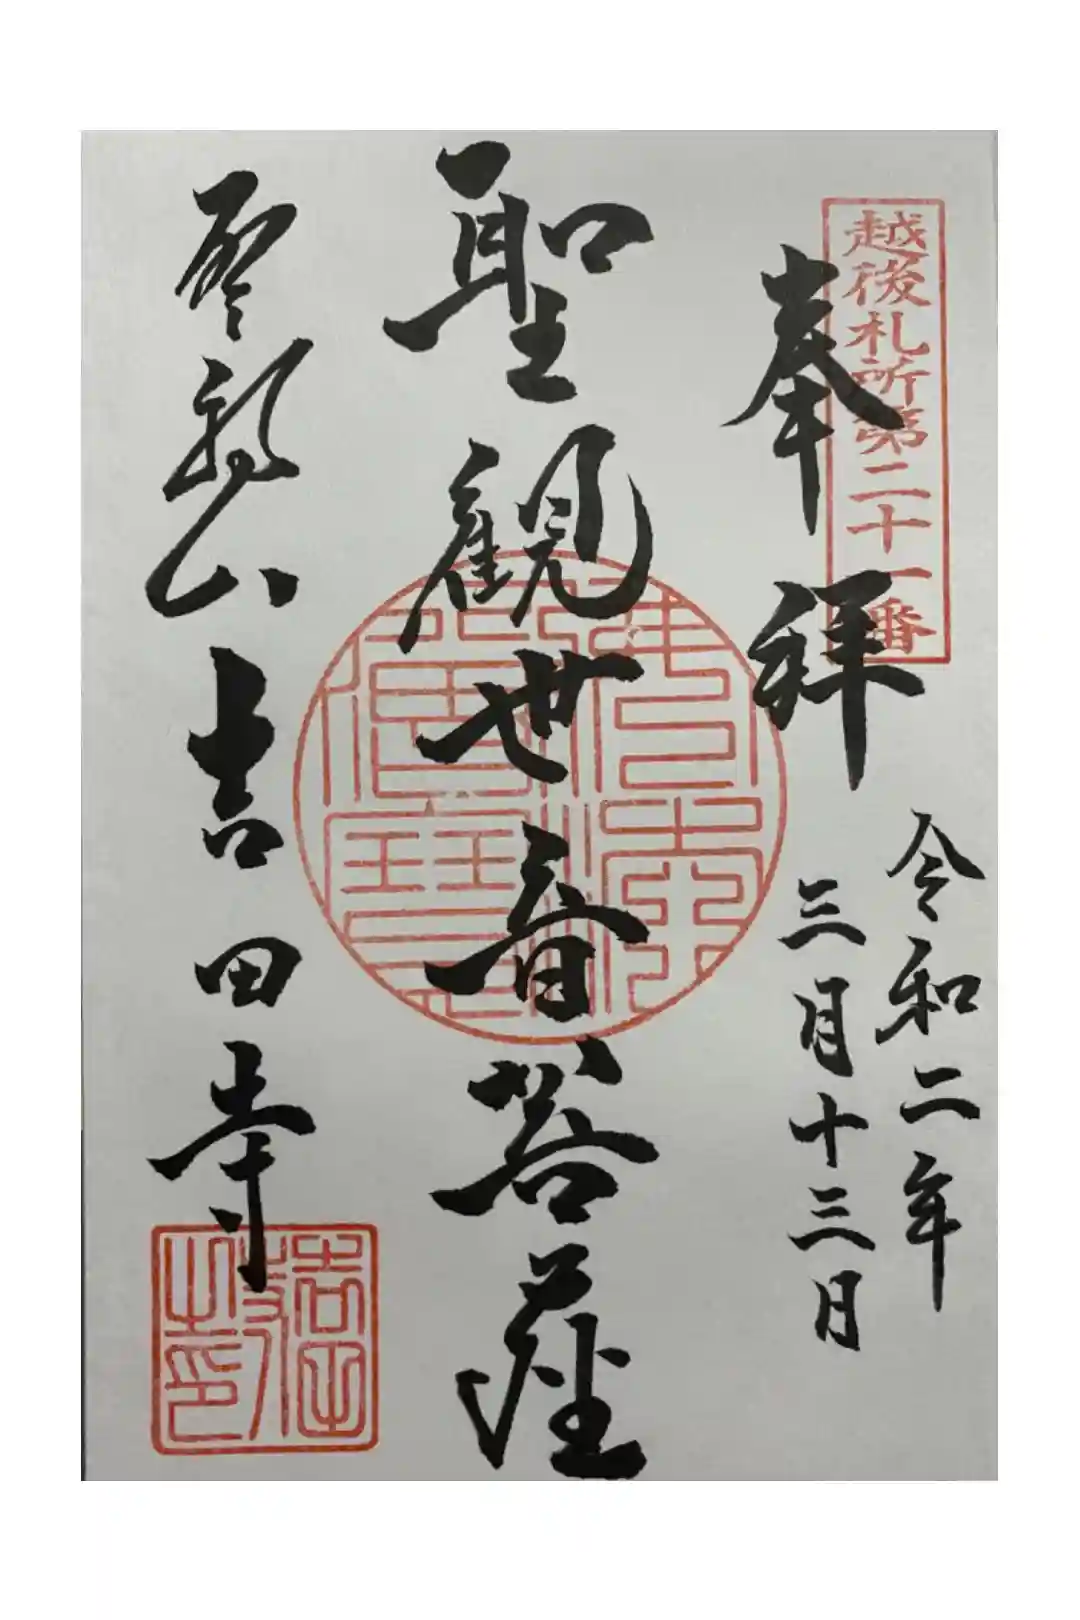 越後札所第二十一番
奉拝
令和二年
三月十三日
聖観世音菩薩
山吉田寺